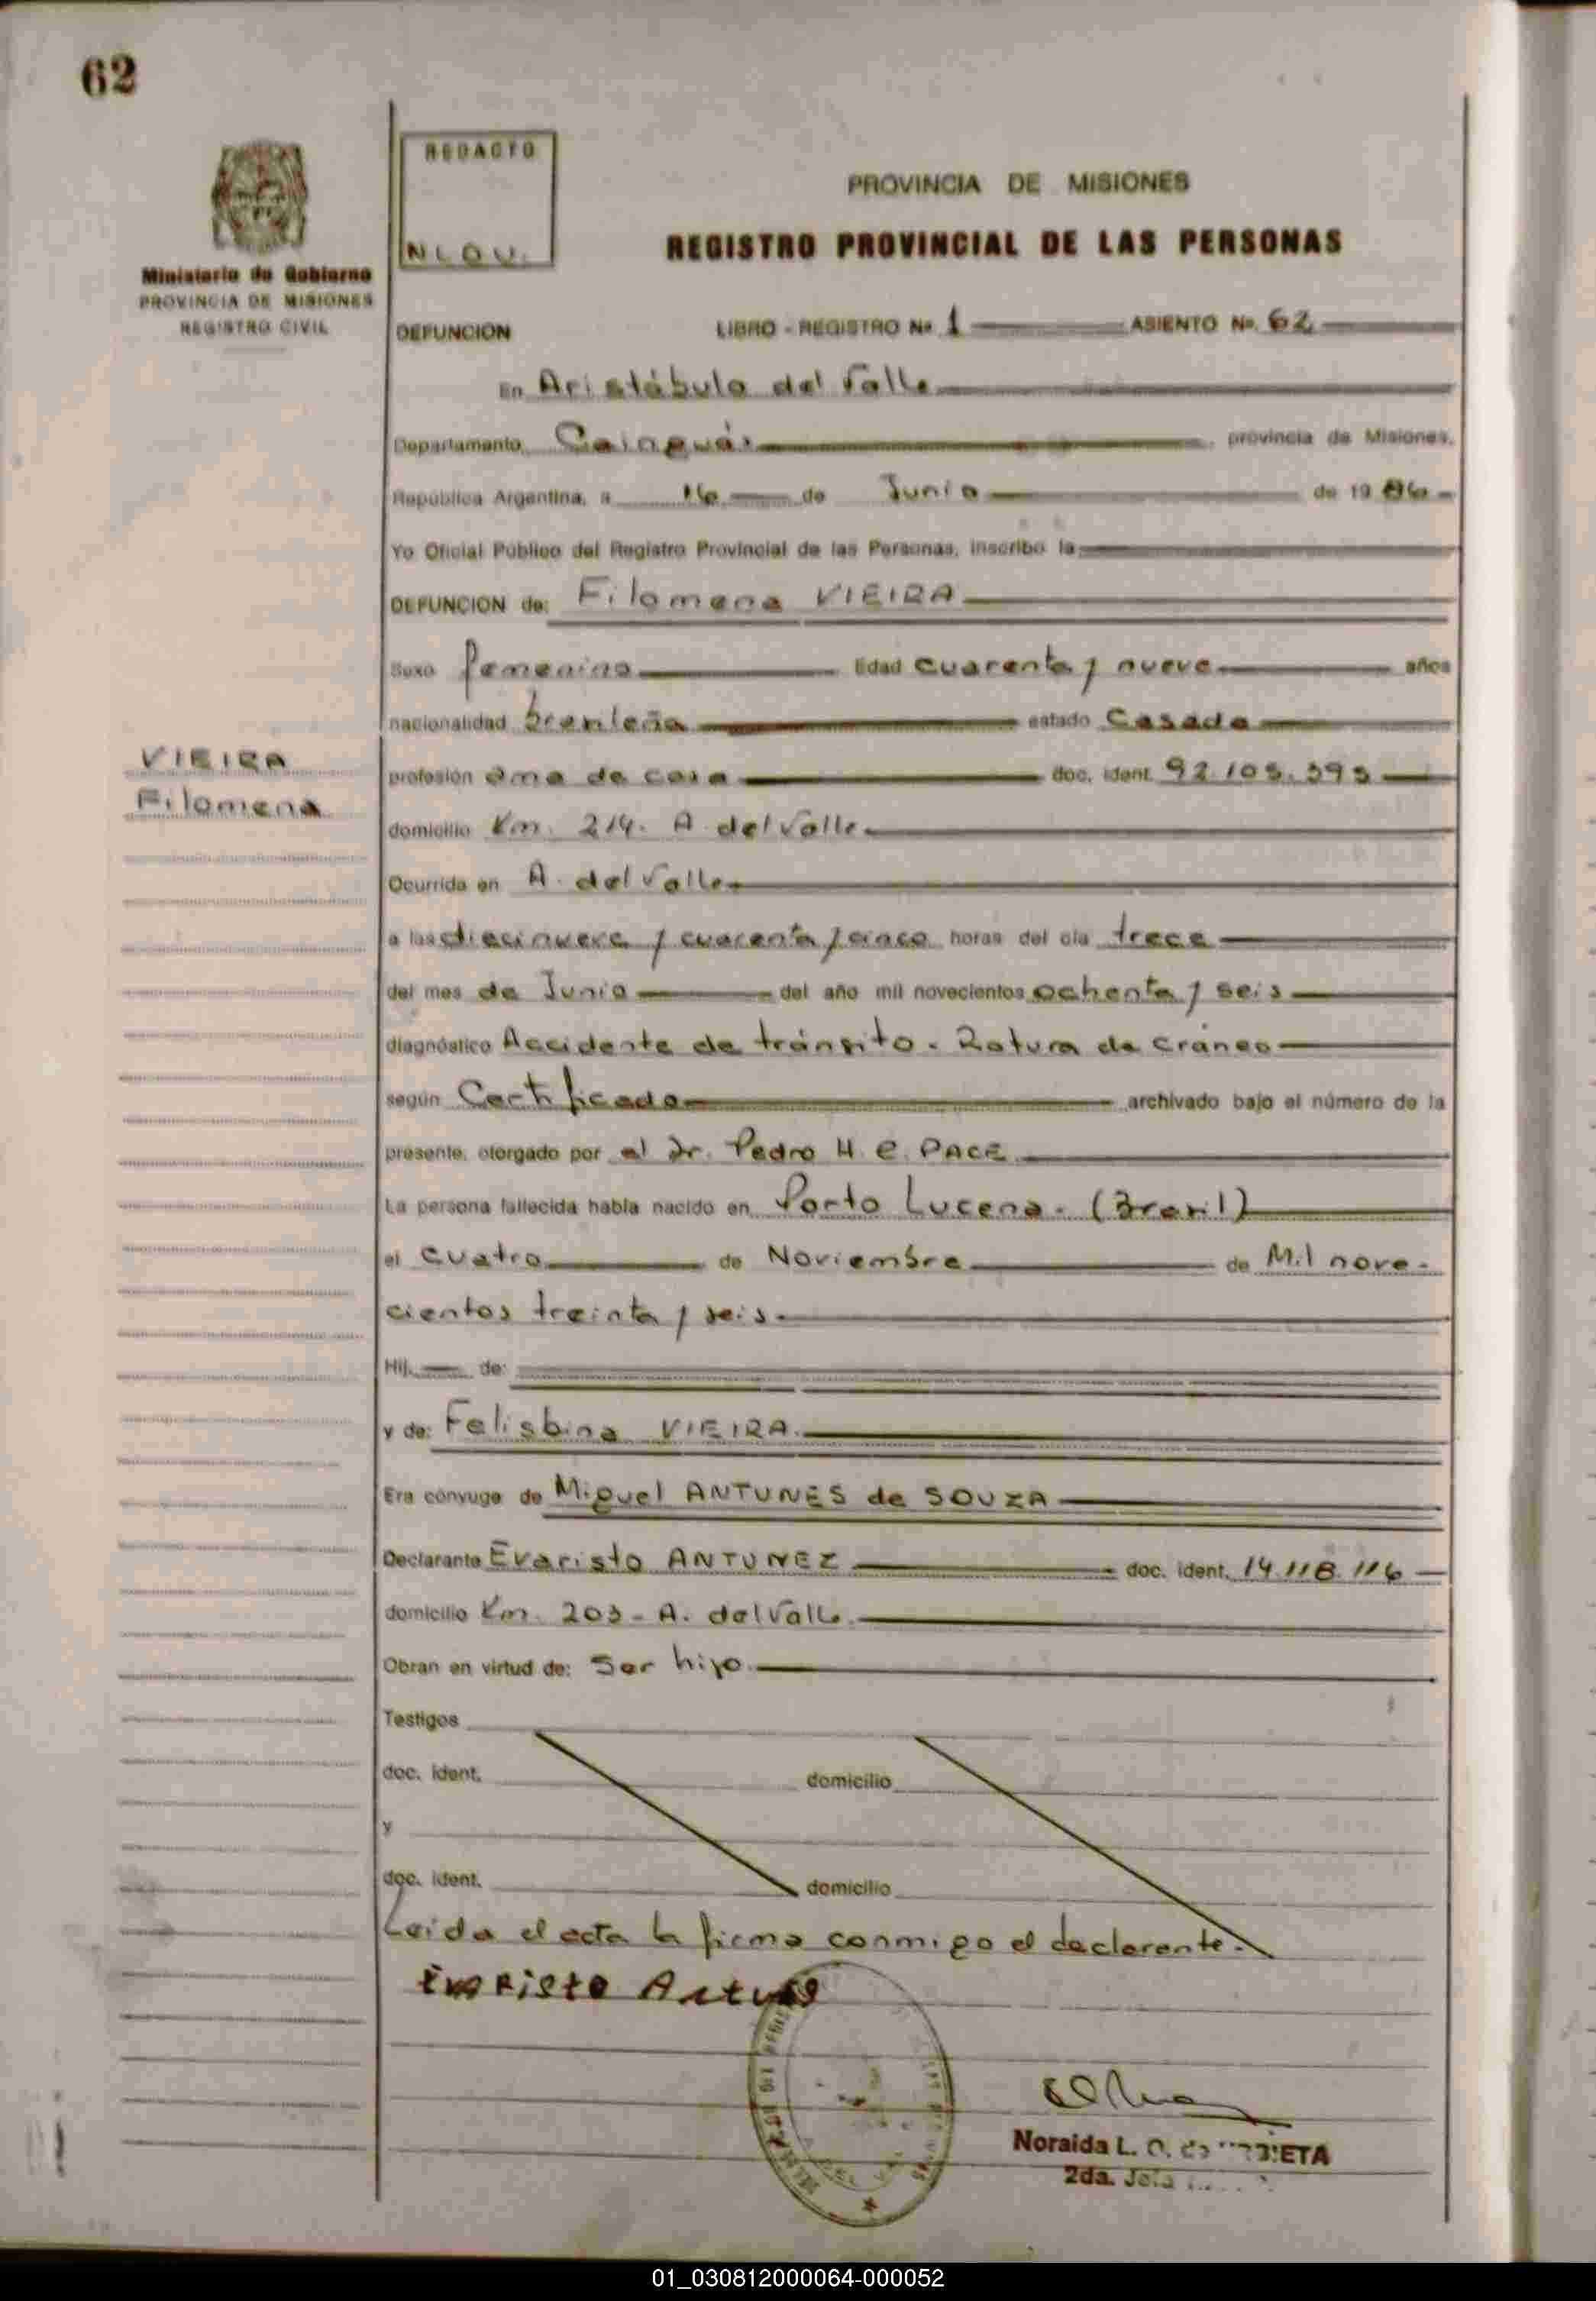 62
REDACTO
N L O U.
Ministerio de Gobierno
PROVINCIA DE MISIONES
REGISTRO CIVIL
PROVINCIA DE MISIONES
REGISTRO PROVINCIAL DE LAS PERSONAS
DEFUNCION LIBRO - REGISTRO Nº 1 ASIENTO Nº. 62
En Aristóbulo del Valle
Departamento Cainguás provincia de Misiones,
República Argentina, a 16 de Junio de 19 86
Yo Oficial Público del Registro Provincial de las Personas, inscribo la
DEFUNCION de: Filomena VIEIRA
Sexo femenino Edad cuarenta y nueve años
nacionalidad brasileña estado Casada
VIEIRA
Filomena
profesión ama de casa doc. ident. 92.105.395
domicilio Km. 214. A. del Valle
Ocurrida en A. del Valle
a las diecinueve y cuarenta y cinco horas del día trece
del mes de Junio del año mil novecientos ochenta y seis
diagnóstico Accidente de tránsito. Rotura de cráneo
según Certificado archivado bajo el número de la
presente, otorgado por el Dr. Pedro H. C. PACE
La persona fallecida había nacido en Porto Lucena. (Brasil)
el cuatro de Noviembre de Mil nove-
cientos treinta y seis.
Hij de:
y de: Felisbina VIEIRA.
Era cónyuge de Miguel ANTUNES de SOUZA
Declarante Evaristo ANTUNEZ doc. ident. 14.118.116
domicilio Km. 203 - A. del Valle.
Obran en virtud de: Ser hijo.
Testigos
doc. ident. domicilio
y
doc. ident. domicilio
Leida el acta la firma conmigo el declarante.
Evaristo
Noraida L. O. de
2da.
01_030812000064-000052